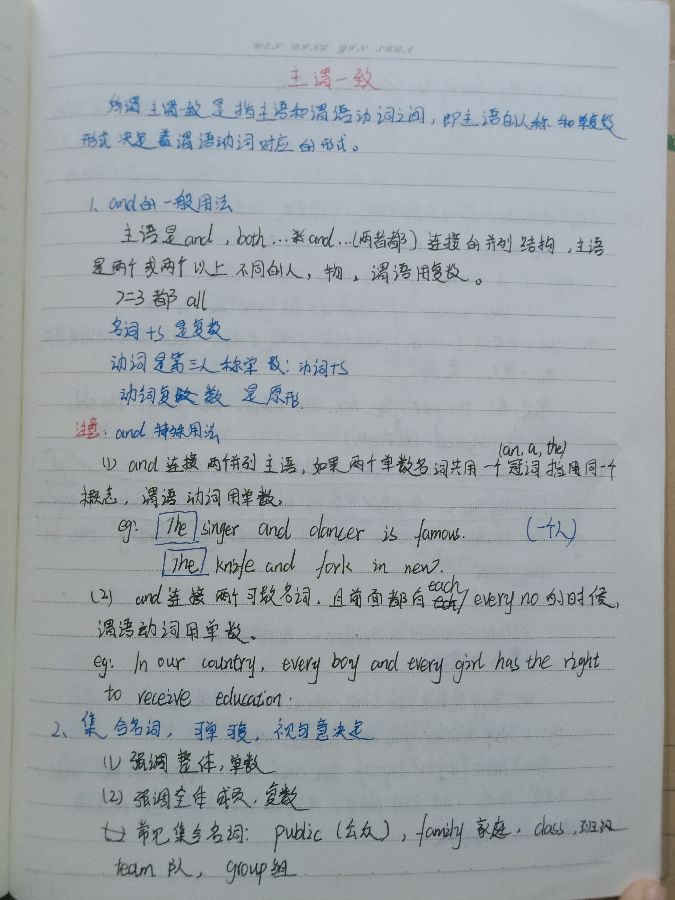 WEN DING YIN SHUA
主谓一致
所谓主谓一致是指主语和谓语动词之间，即主语的人称和单复数
形式决定着谓语动词对应的形式。
1. and的一般用法
主语是and，both...and...(两者都) 连接的并列结构，主语
是两个或两个以上不同的人，物，谓语用复数。
>=3 都 all
名词+s 是复数
动词是第三人称单数：动词+s
动词复数 是原形.
注意：and特殊用法
(an, a, the)
(1) and连接两个并列主语，如果两个单数名词共用一个冠词指同一个
概念，谓语动词用单数。
eg: The singer and dancer is famous. (一个人)
The knife and fork in new.
(2) and连接两个可数名词，且前面都有each/every no 的时候，
谓语动词用单数。
eg: In our country, every boy and every girl has the right
to receive education.
2、集合名词，可单可复，视句意决定
(1) 强调整体，单数
(2) 强调全体成员，复数
常见集合名词：public (公众)，family 家庭，class，班级
team 队，group组